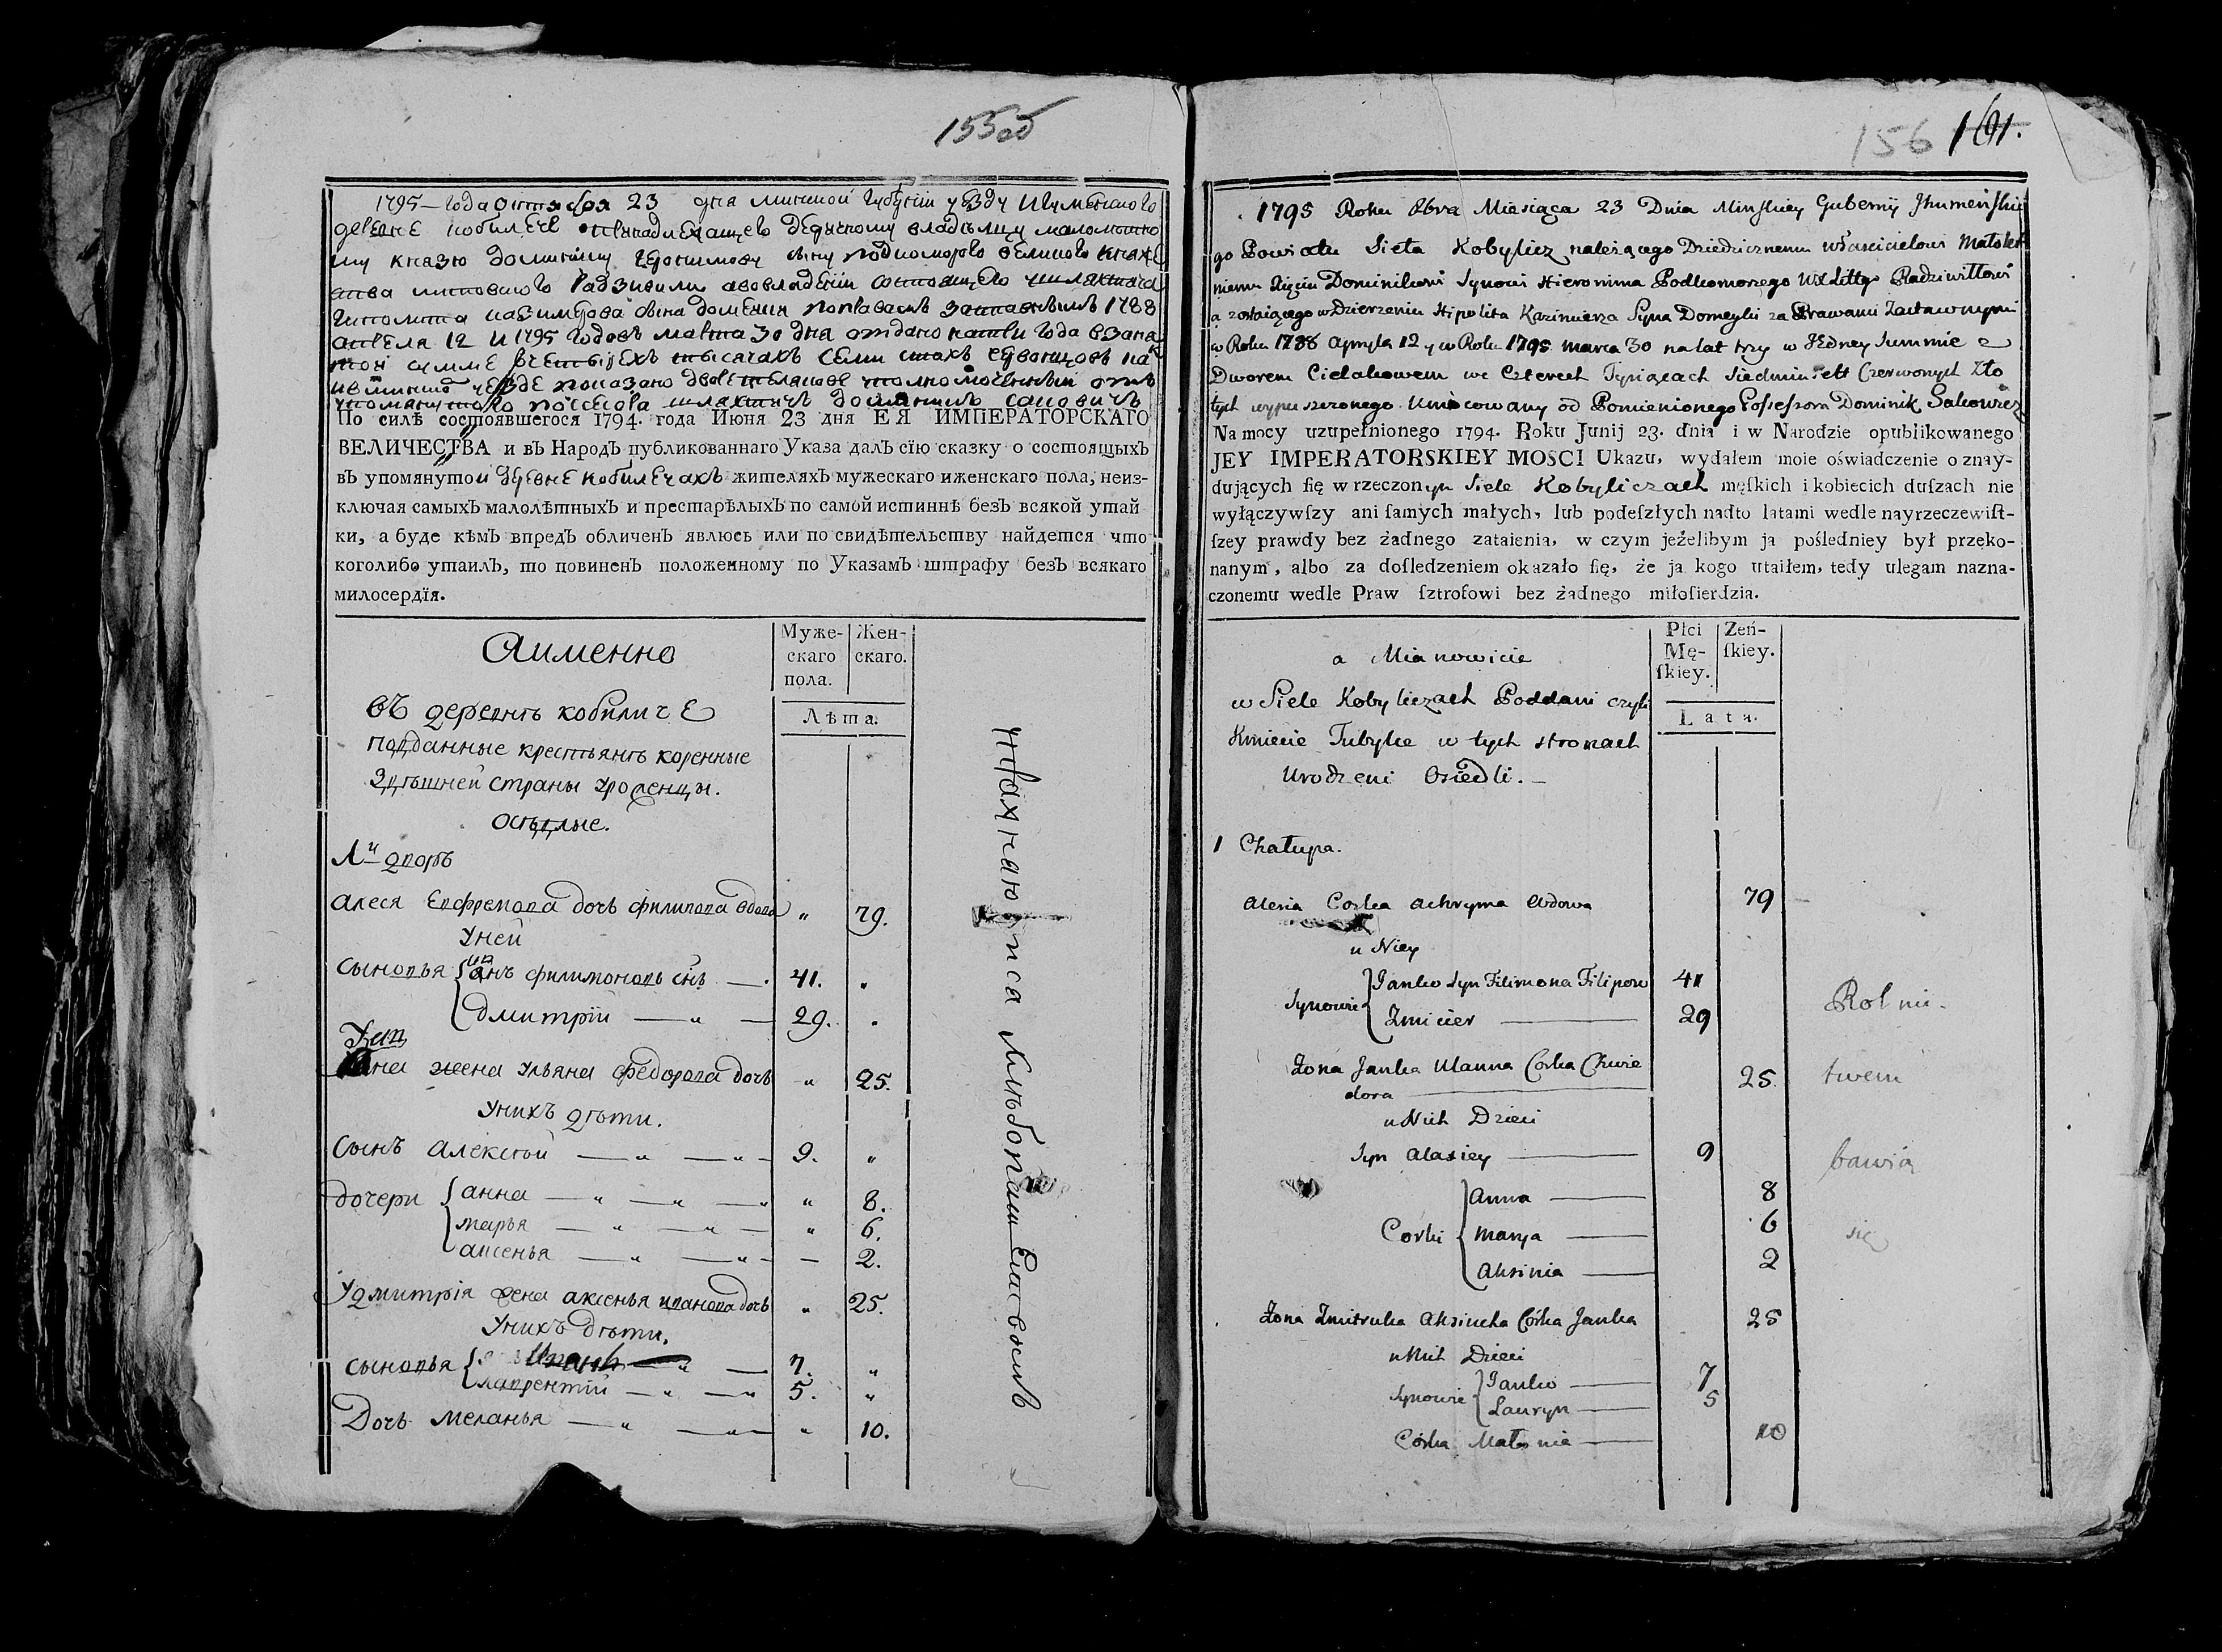 155об
1795 года октября 23 дня минской губернии уезду Игуменского
деревне кобиличе принадлежащего дедичному владельцу малолетно
му князю доминику Геронимову сыну подкоморого великого княже
ства литовского Радзивилу авовладении состоящего шляхтича
Гиполита казимерова сына домейки поправам заставным 1788
апреля 12 и 1795 годовъ марта 30 дня отдано натри года
той сумме вчетырехъ тысячахъ семи стахъ червонцовъ
упомянутого посесора шляхтичъ доминикъ саковичъ
По силѣ состоявшегося 1794. года Июня 23 дня ЕЯ ИМПЕРАТОРСКАГО
ВЕЛИЧЕСТВА и въ Народъ публикованнаго Указа далъ сїю сказку о состоящыхъ
въ упомянутои деревне кобиличахъ жителяхъ мужескаго иженскаго пола, неиз-
ключая самыхъ малолѣтныхъ и престарѣлыхъ по самой истиннѣ безъ всякой утай
ки, а буде кѣмъ впредъ обличенъ явлюсь или по свидѣтельству найдется что
коголибо утаилъ, то повиненъ положенному по Указамъ штрафу безъ всякаго
милосердїя.
Аименно
Муже-
скаго
пола.
Жен-
скаго.
Лѣта.
въ деревнѣ кобиличе
подданные крестьянѣ коренные
здѣшней страны уроженцы.
осѣдлые.
1й дворъ
алеся Евфремова дочь филипова вдова " 79.
Уней
Сыновья { филимоновъ снъ — 41. "
дмитрїй — " — 29. "
жена ульяна федорова дочь " 25.
Унихъ дѣти.
Сынъ алексѣй — " — " — 9. "
дочери { анна — " — " — " " 8.
марья — " — " — " 6.
аксенья — " — " — — 2.
Удмитрїя жена аксенья иванова дочь " 25.
Унихъ дѣти.
сыновья { Иванъ — " — 7. "
лаврентїй — " — " 5. "
Дочь меланья — " — " — " 10.
156 161.
1795 Roku 8bra Miesiąca 23 Dnia Minskiey Gubernij Jhumeńskie
go Powiatu Sieła Kobylicz należącego Dziedzicznemu właścicielowi Małolet
niemu Xięciu Dominikowi Synowi Hieronima Podkomorzego WXLittgo Radziwiłłowi
a zostaiącego w Dzierzeniu Hipolita Kazimierza Syna Domeyki za Prawami Zastawnymi
w Roku 1788 Apryla 12 y w Roku 1795 marca 30 na lat trzy w Jedney Summie z
Dworem Cielakowem we Czterech Tysiącach Siedmiuset Czerwonych Zło
tych wypuszczonego. Umocowany od Pomienionego Possessora Dominik Sakowicz
Na mocy uzupełnionego 1794. Roku Junij 23. dnia i w Narodzie opublikowanego
JEY IMPERATORSKIEY MOSCI Ukazu, wydałem moie oświadczenie o znay-
dujących ſię w rzeczonym Siele Kobyliczach męſkich i kobiecich duſzach nie
wyłączywſzy ani ſamych małych, lub podeſzłych nadto latami wedle nayrzeczewiſt-
ſzey prawdy bez żadnego zataienia, w czym jeżelibym ja pośledniey był przeko-
nanym, albo za doſledzeniem okazało ſię, że ja kogo utaiłem, tedy ulegam nazna-
czonemu wedle Praw ſztrofowi bez żadnego miłoſierdzia.
a Mianowicie
Płci
Mę-
ſkiey.
Zeń-
ſkiey.
Lata.
w Siele Kobyliczach Poddani czyli
Kmiecie Tubylce w tych stronach
Urodzeni Osiedli.—
1 Chałupa.
Alesia Corka Achryma Wdowa 79
u Niey
Synowie { Janko Syn Filimona Filipow 41
Zmicier 29
Żona Janka Ulanna Corka Chwie
dora 25
u Nich Dzieci
Syn Alaxiey 9
Corki { Anna 8
Marya 6
Aksinia 2
Żona Zmitruka Aksiucha Córka Janka 25
u Nich Dzieci
Synowie { Janko 7
Lauryn 5
Córka Małania 10
Rolni-
twem
bawią
się